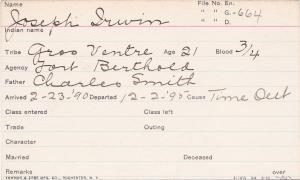 Name File No. En.
Joseph Irwin " " G.-664
Indian name " " D.
Tribe Gros Ventre Age 21 Blood 3/4
Agency Fort Berthold
Father Charles Smith
Arrived 2-23-'90 Departed 12-2-'95 Cause Time Out
Class entered Class left
Trade Outing
Character
Married Deceased
Remarks over
YAWMAN & ERBE MFG. CO., ROCHESTER, N. Y.